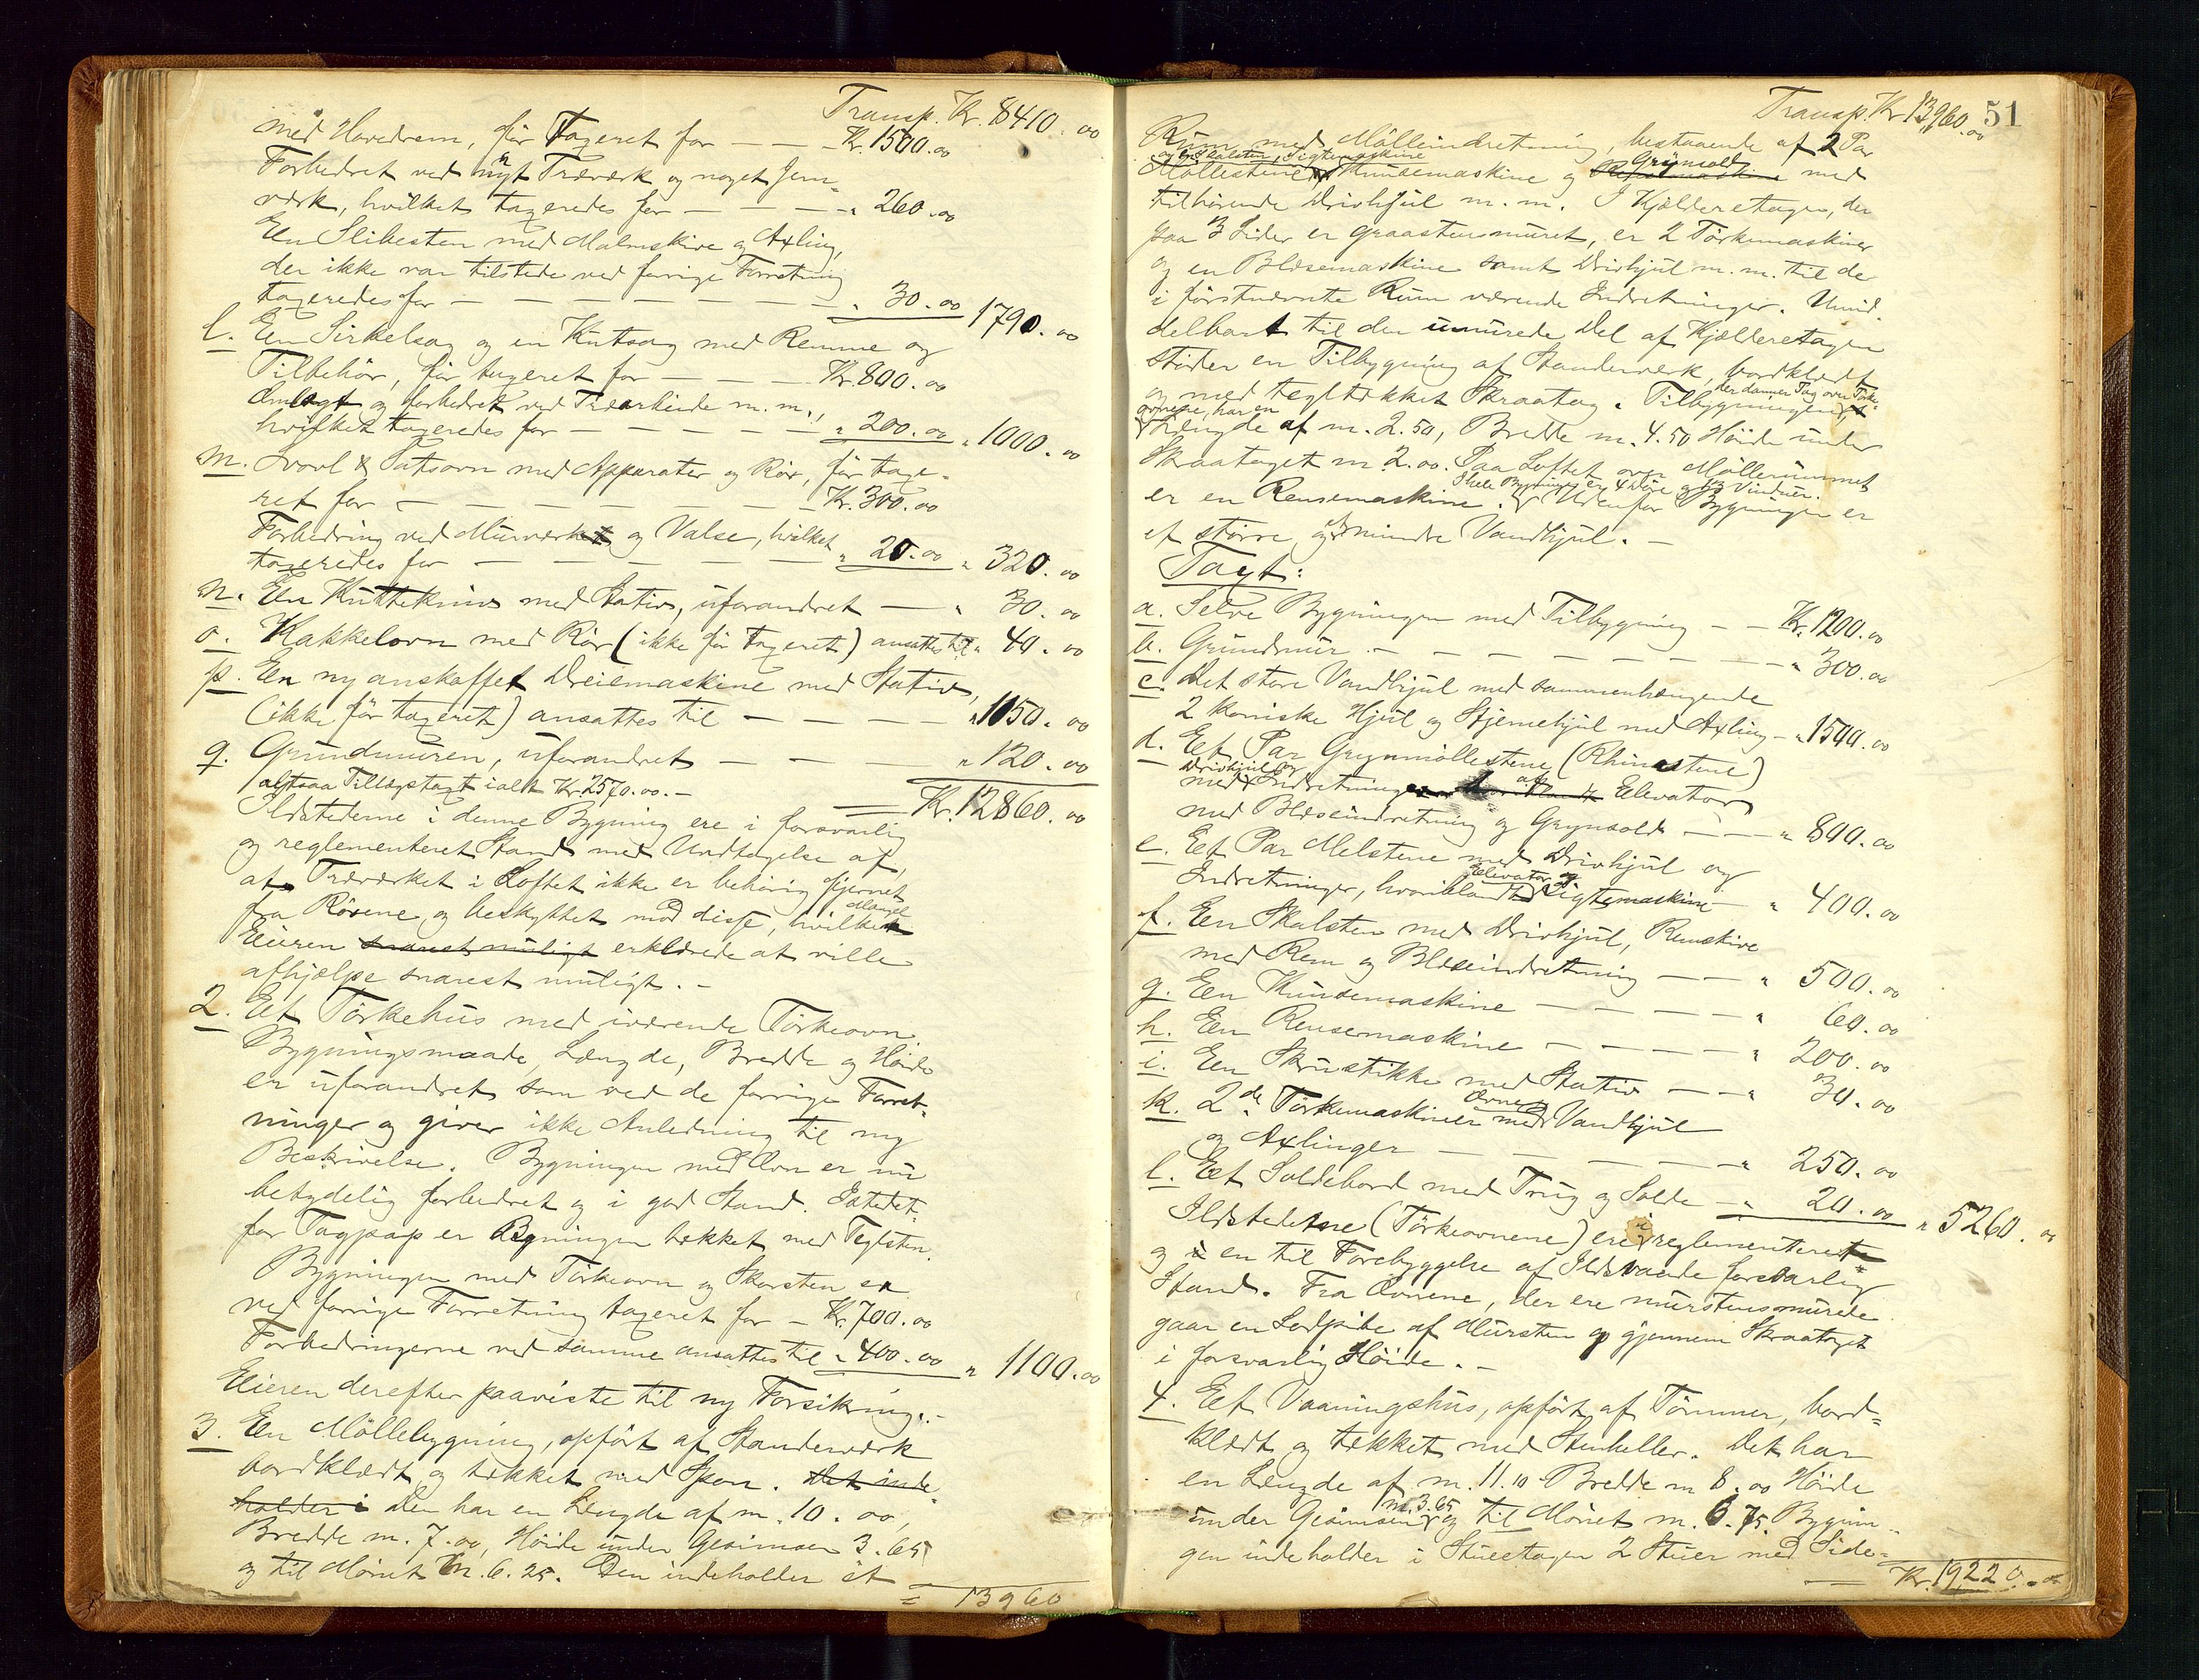 Transp. Kr. 8410.00
med Hovedrem, før taxeret for — — Kr. 1500.00
Forbedret ved nyt Træværk og noget Jern-
værk, hvilket taxeredes for — — — " 260.00
Een Slibesten med Malmskive og Axling,
der ikke var tilstede ved forrige Forretning
taxeredes for — — — — — — " 30.00 1790.00
l. Een Sirkelsag og en Kutsag med Remme og
Tilbehør, før taxeret for — — — Kr. 800.00
Omlagt og forbedret ved Træarbeide m.m.,
hvilket taxeredes for — — — — — " 200.00 " 1000.00
m. Svovl & Satsovn med Apparater og Rør, før taxe-
ret for — — — — — — Kr. 300.00
Forbedring ved Murværket og Valse, hvilket
taxeredes for — — — — — " 20.00 " 320.00
n. Een Kuttekniv med Stativ, uforandret — " 30.00
o. Kakkelovn med Rør (ikke før taxeret) ansattes til " 40.00
p. En nyanskaffet Dreiemaskine med Stativ,
(ikke før taxeret) ansattes til — — — — " 1050.00
q. Grundmuren, uforandret — — — " 120.00
altsaa Tillægstaxt ialt Kr. 2570.00.—
= Kr. 12860.00
Ildstederne i denne Bygning ere i forsvarlig
og reglementeret Stand med Undtagelse af,
at Træværket i Loftet ikke er behørig fjernet
fra Rørene og beskyttet mod disse, hvilken Mangel
Eieren snarest muligt erklærede at ville
afhjælpe snarest muligt.—
2. Eet Tørkehus med iværende Tørkeovn.
Bygningsmaade, Længde, Bredde og Høide
er uforandret som ved de forrige Forret-
ninger og giver ikke Anledning til ny
Beskrivelse. Bygningen med Ovn er nu
betydelig forbedret og i god Stand. Istedet-
for Tagpap er Bygningen tækket med Teglsten.
Bygningen med Tørkeovn og Skorsten er
ved forrige Forretning taxeret for — Kr. 700.00
Forbedringerne ved samme ansattes til " 400.00 " 1100.00
Eieren derefter paaviste til ny Forsikring:—
3. Een Møllebygning, opført af Standerværk
bordklædt og tækket med Spon. Det inde-
holder i Den har en Længde af m. 10.00,
Bredde m. 7.00, Høide under Gesimsen 3.65
og til Mønet m. 6.25. Den indeholder et
= 13960
Transp. Kr. 13960.00 51
Rum med Mølleindretning, bestaaende af 2 Par
og en Skalsten, Sigtemaskine Grynsold
Møllestene, Kunsemaskine og Rensemaskine med
tilhørende Drivhjul m.m. I Kjælderetagen, der
paa 3 Sider er graastensmuret, er 2 Tørkemaskiner
og en Blæsemaskine samt Drivhjul m.m. til de
i førstnævnte Rum værende Indretninger. Umid-
delbart til den umurede Del af Kjælderetagen
støder en Tilbygning af Standerværk, bordklædt
og med tegltækket Skraatag. Tilbygningen, der danner Tag over Tørke-
ovnene, har en
Længde af m. 2.50, Bredde m. 4.50 Høide under
Skraataget m. 2.00. Paa Loftet over Møllerummet
I hele Bygningen er 4 Døre og 3 Vinduer.
er en Rensemaskine. Udenfor Bygningen er
et større og et mindre Vandhjul.—
Taxt:
a. Selve Bygningen med Tilbygning — — Kr. 1200.00
b. Grundmur.— — — — — — — — " 300.00
c. Det store Vandhjul med sammenhængende
2 koniske Hjul og Stjernehjul med Axling — " 1500.00
d. Eet Par Grynmøllestene (Rhinstene)
Drivhjul og
med Indretninger af Elevator
med Blæseindretning og Grynsold — — " 800.00
e. Eet Par Melstene med Drivhjul og
Elevator og
Indretninger, hvoriblandt Sigtemaskine — " 400.00
f. Een Skalsten med Drivhjul, Remskive
med Rem og Blæseindretning — — " 500.00
g. Een Kunsemaskine — — — — — " 60.00
h. Een Rensemaskine — — — — — " 200.00
i. Een Skrustikke med Stativ — — " 30.00
Ovne,
k. 2de Tørkemaskiner med Vandhjul
og Axlinger — — — — — " 250.00
l. Eet Soldebord med Trug og Solde — " 20.00 " 5260.00
Ildstederne (Tørkeovnene) ere i reglementeret
og i en til Forebyggelse af Ildsvaade forsvarlig
Stand. Fra Ovnene, der ere murstensmurede
gaar en Lodpibe af Mursten op gjennem Skraataget
i forsvarlig Høide.—
4. Eet Vaaningshus, opført af Tømmer, bord-
klædt og tækket med Stenheller. Det har
en Længde af m. 11.10 Bredde m 8.00 Høide
m. 3.65
under Gesimsen og til Mønet m. 6.75. Bygnin-
gen indeholder i Stueetagen 2 Stuer med Side-
= Kr. 19220.00